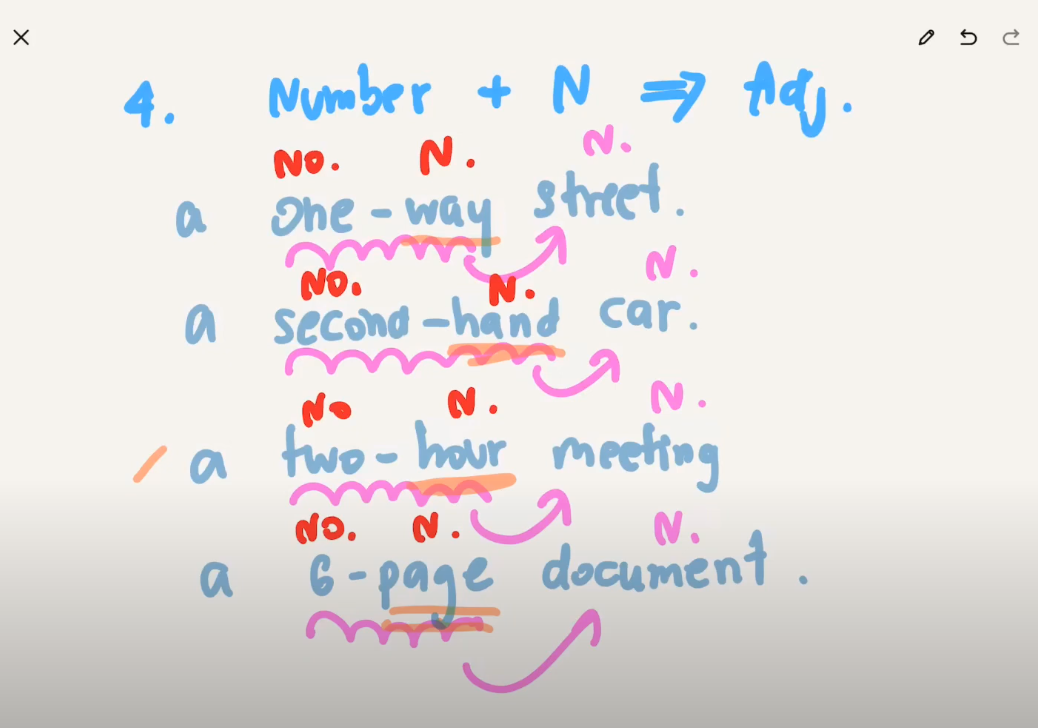 4. Number + N ⇒ Adj.
No. N. N.
a one-way street.
No. N. N.
a second-hand car.
No N. N.
a two-hour meeting
No. N. N.
a 6-page document.